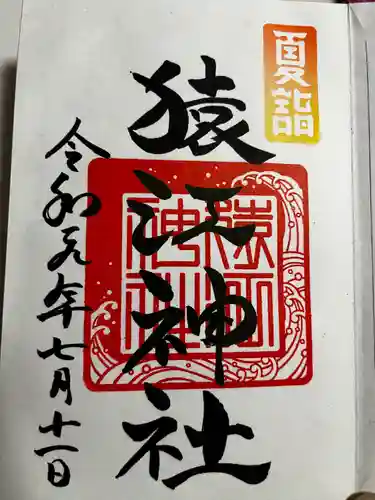 夏詣
猿江神社
猿江神社
令和元年七月十一日